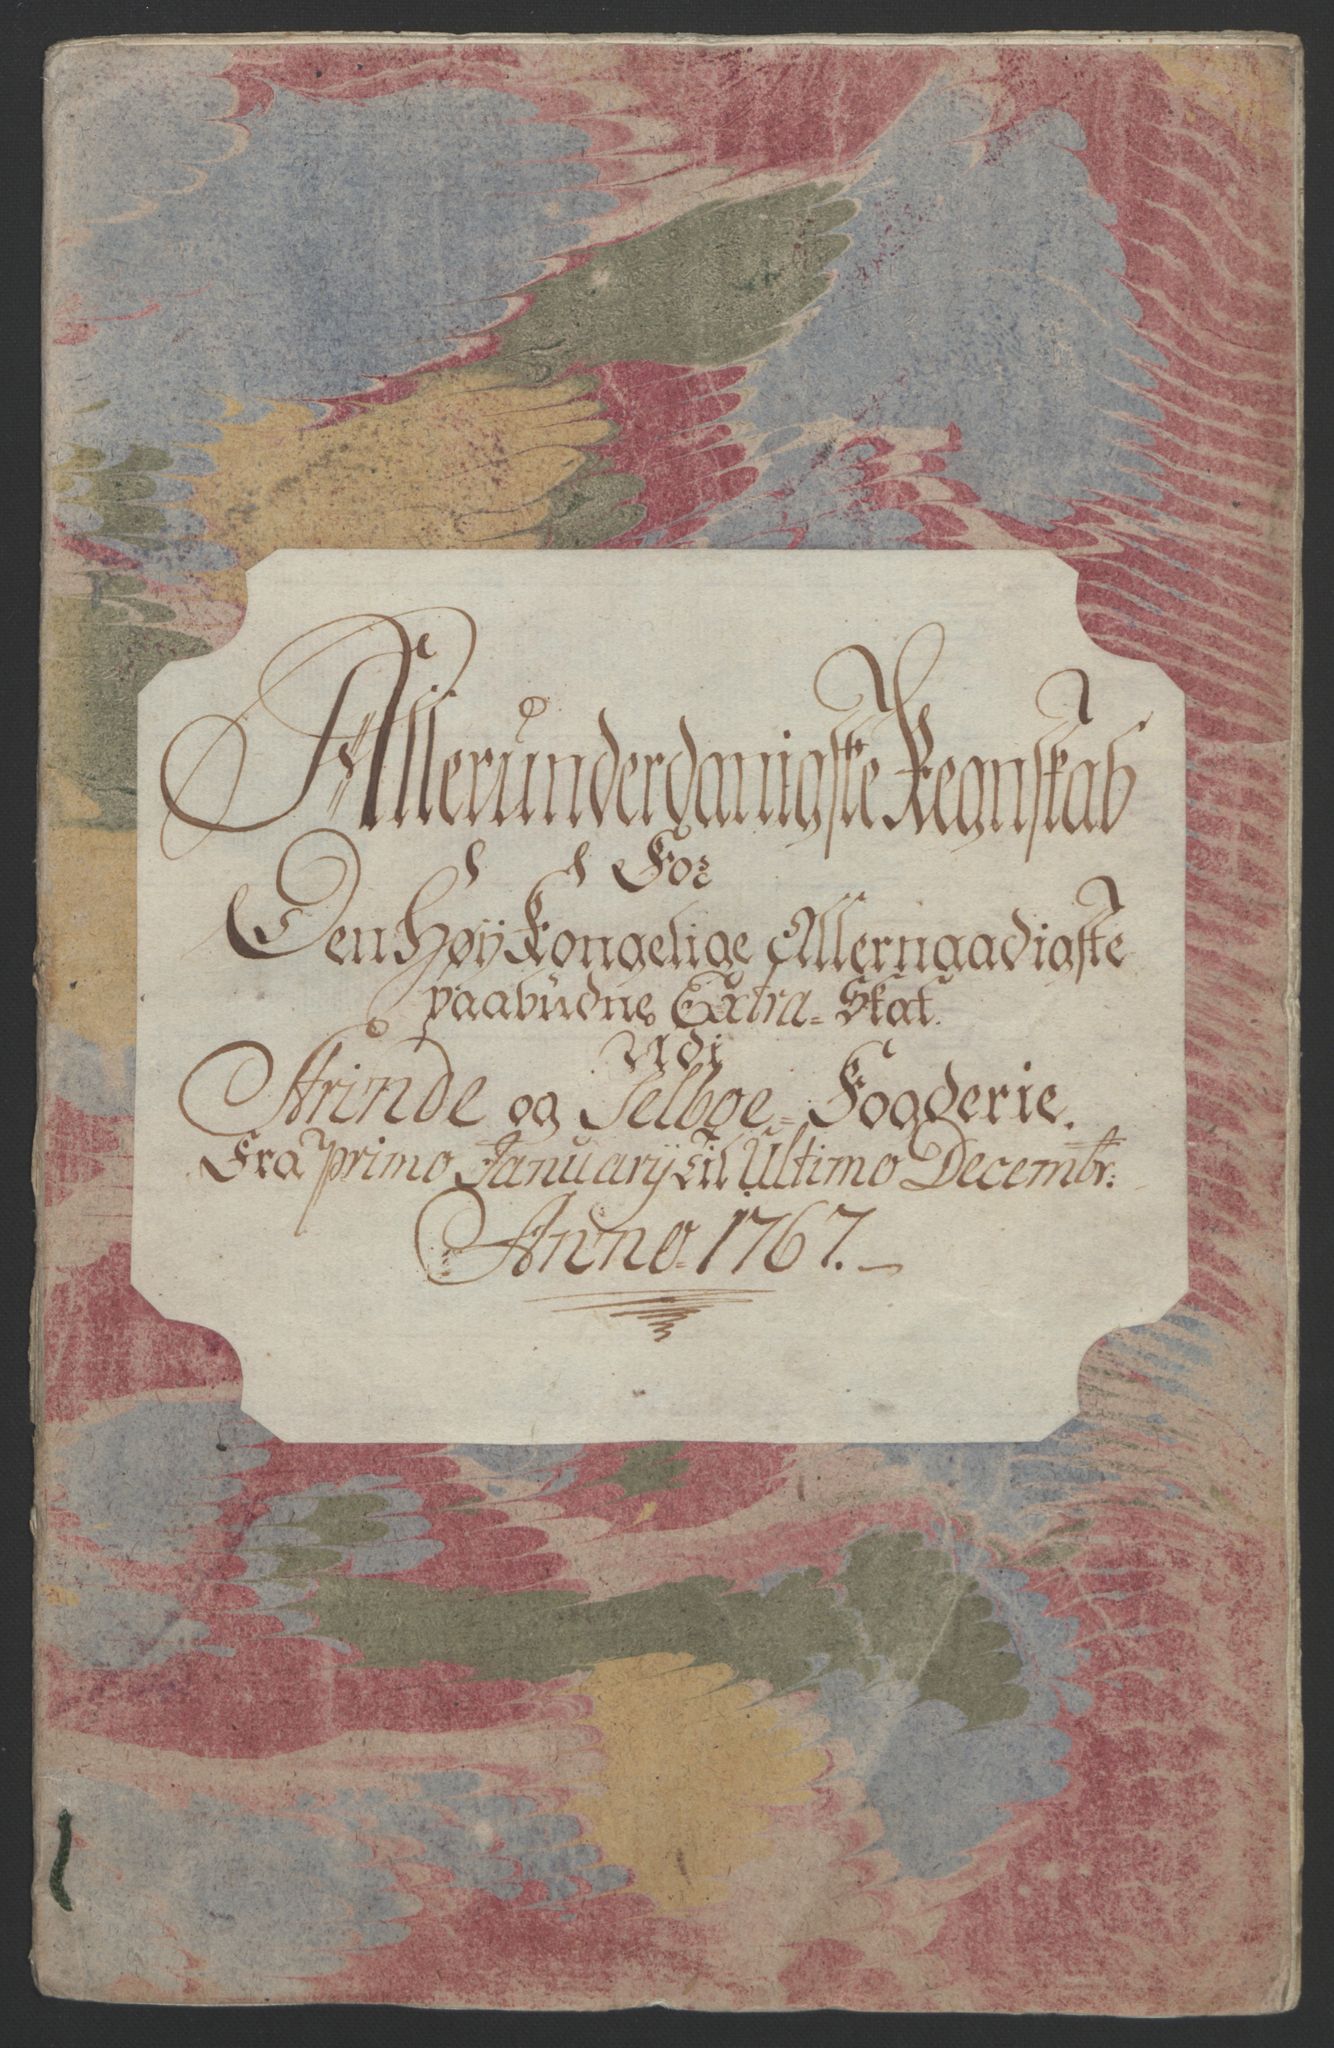 Allerunderdanigste Regnskab
For
Den Høÿ Kongelige Allernaadigste
paabudne Extra=Skat.
Udi
Strinde og Selboe=Fogderie.
Fra primo Januarÿ til Ultimo Decembr:
Anno=1767.